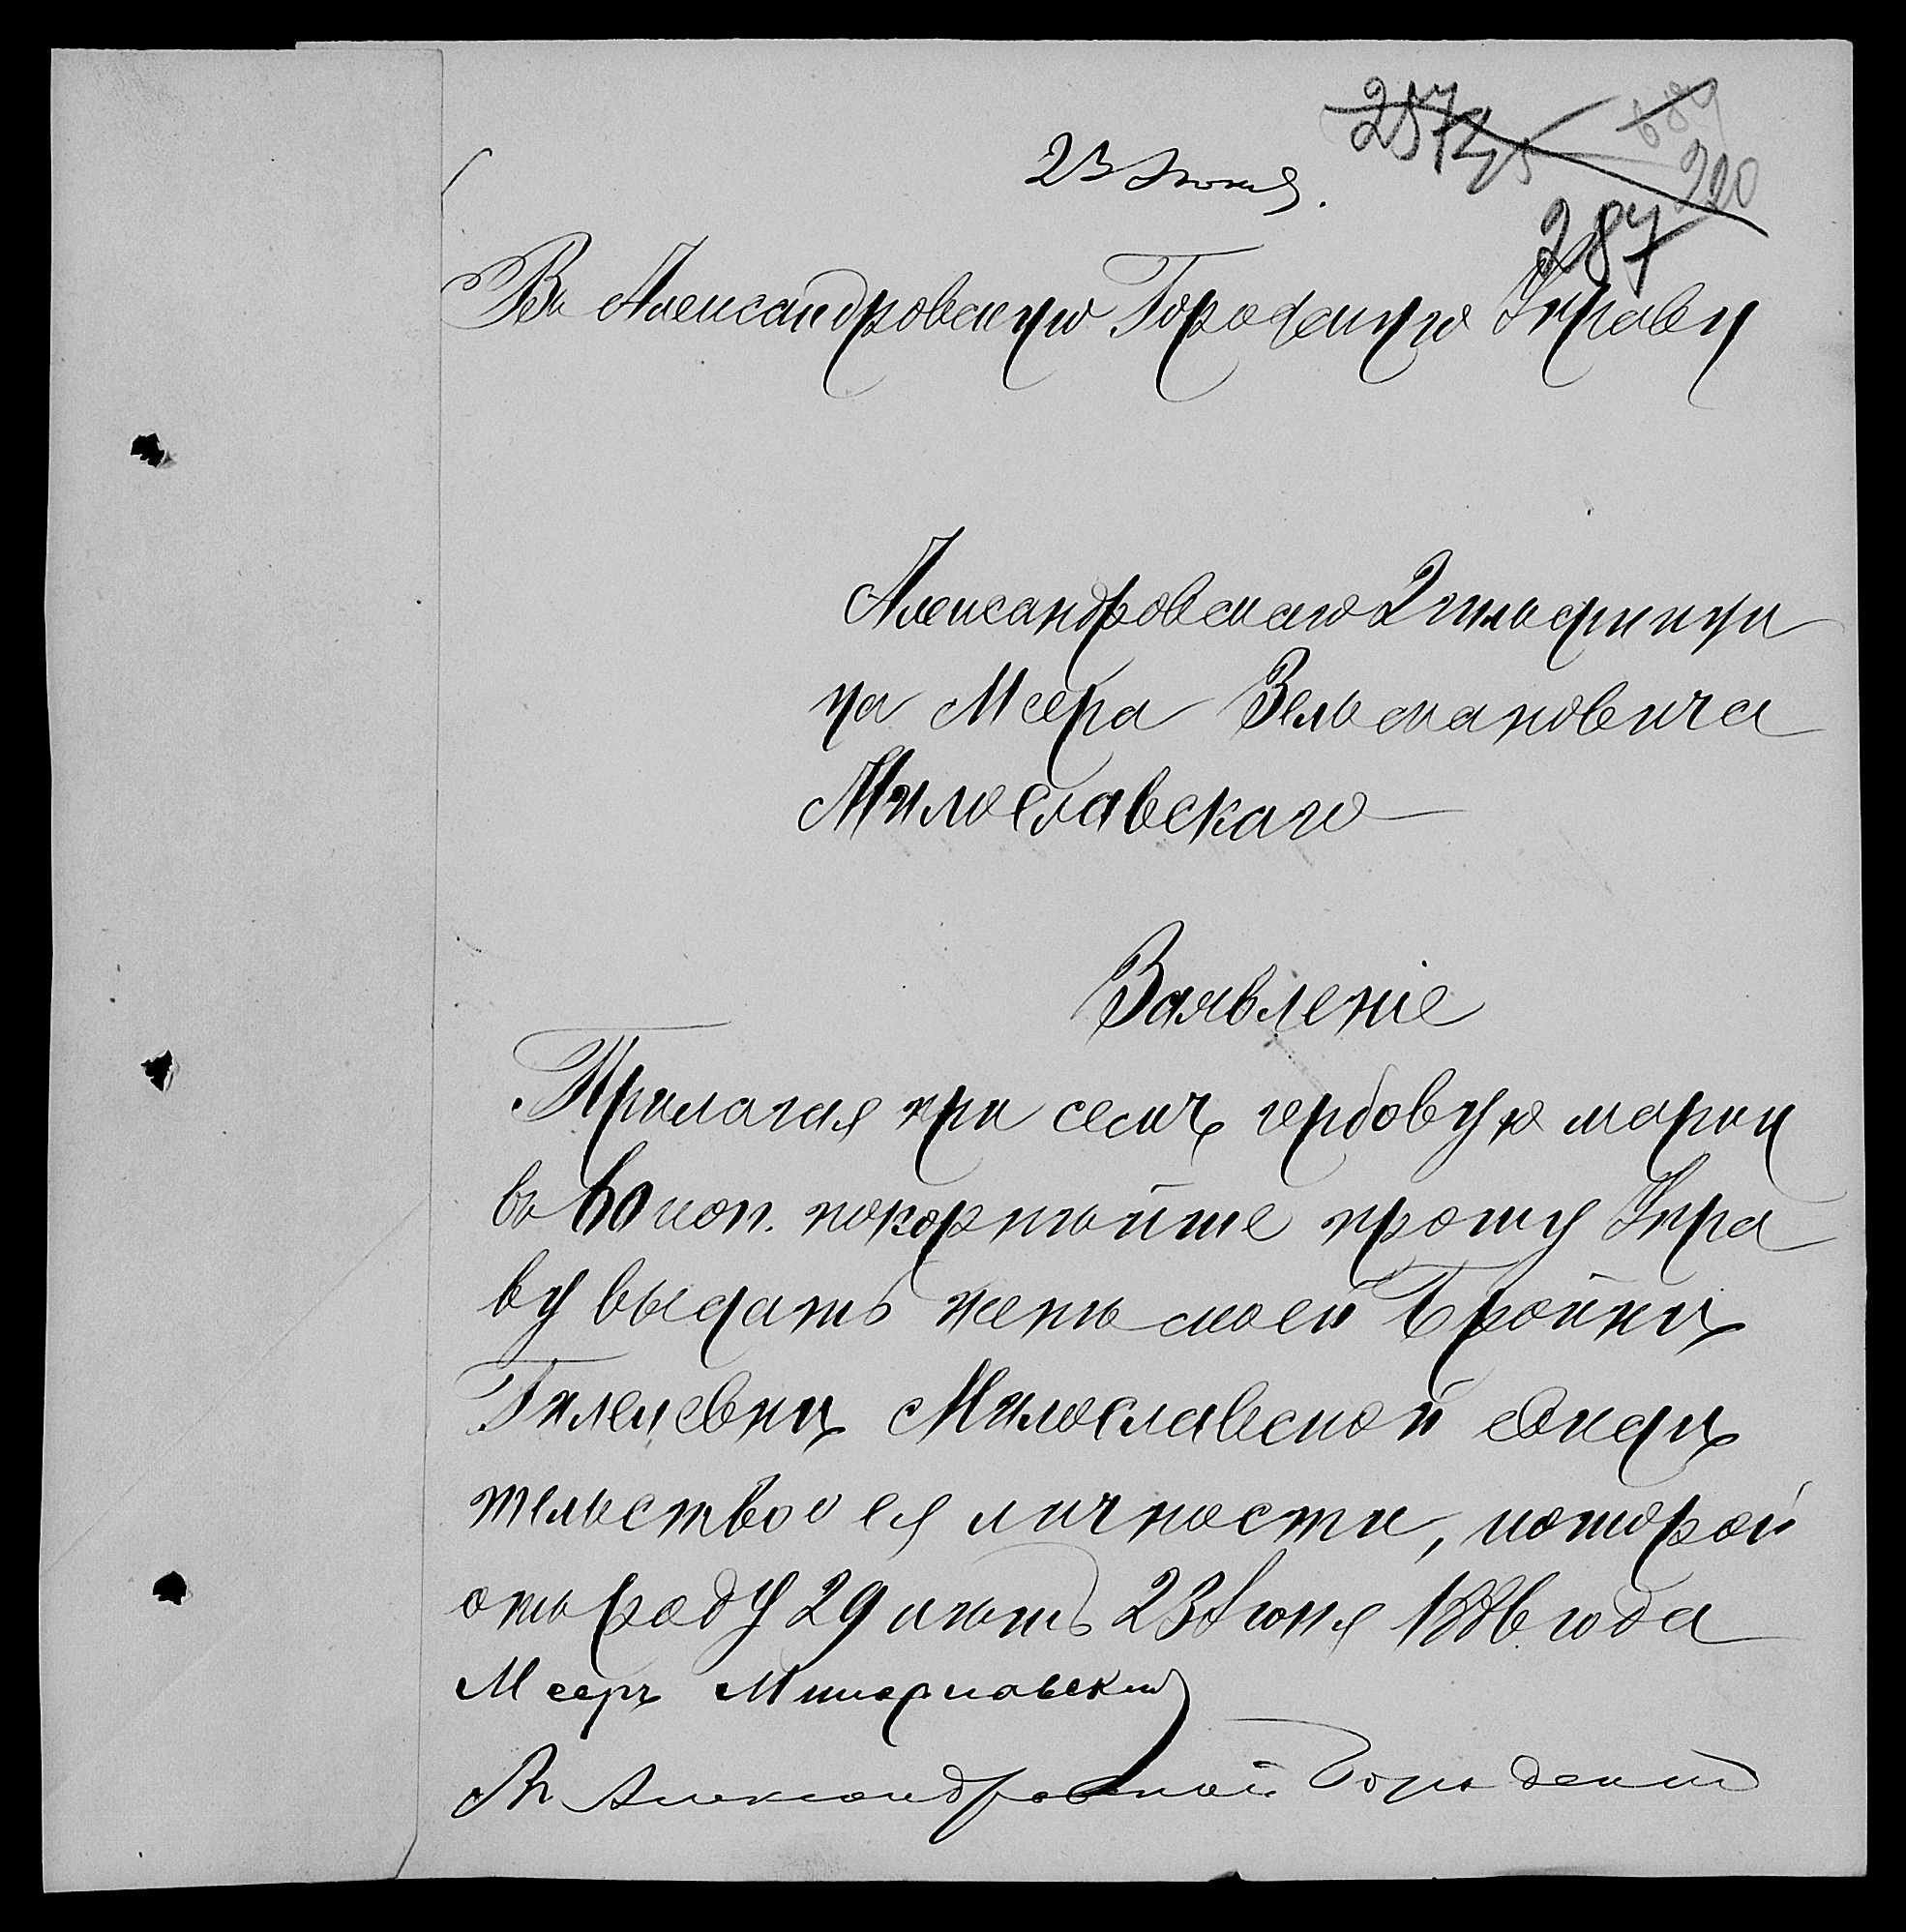 257
689
220
23 Июня.
287
Въ Александровскую Городскую Управу
Александровскаго 2 гильд. купи
ца Меера Зельмановича
Милославскаго
Заявленіе
Прилагая при семъ гербовую марку
въ 60 коп. покорнѣйше прошу Упра
ву выдать женѣ моей Бройни
Гилелевни Милославской свиди
тельство о ея личности, которой
отъ роду 29 лѣтъ 23 Іюня 1886 года
Мееръ Милославскій
Въ Александровской Городской